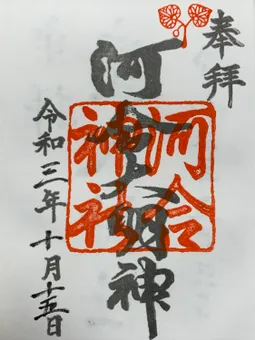 奉拝
河合明神
河合
神社
令和三年十月十五日